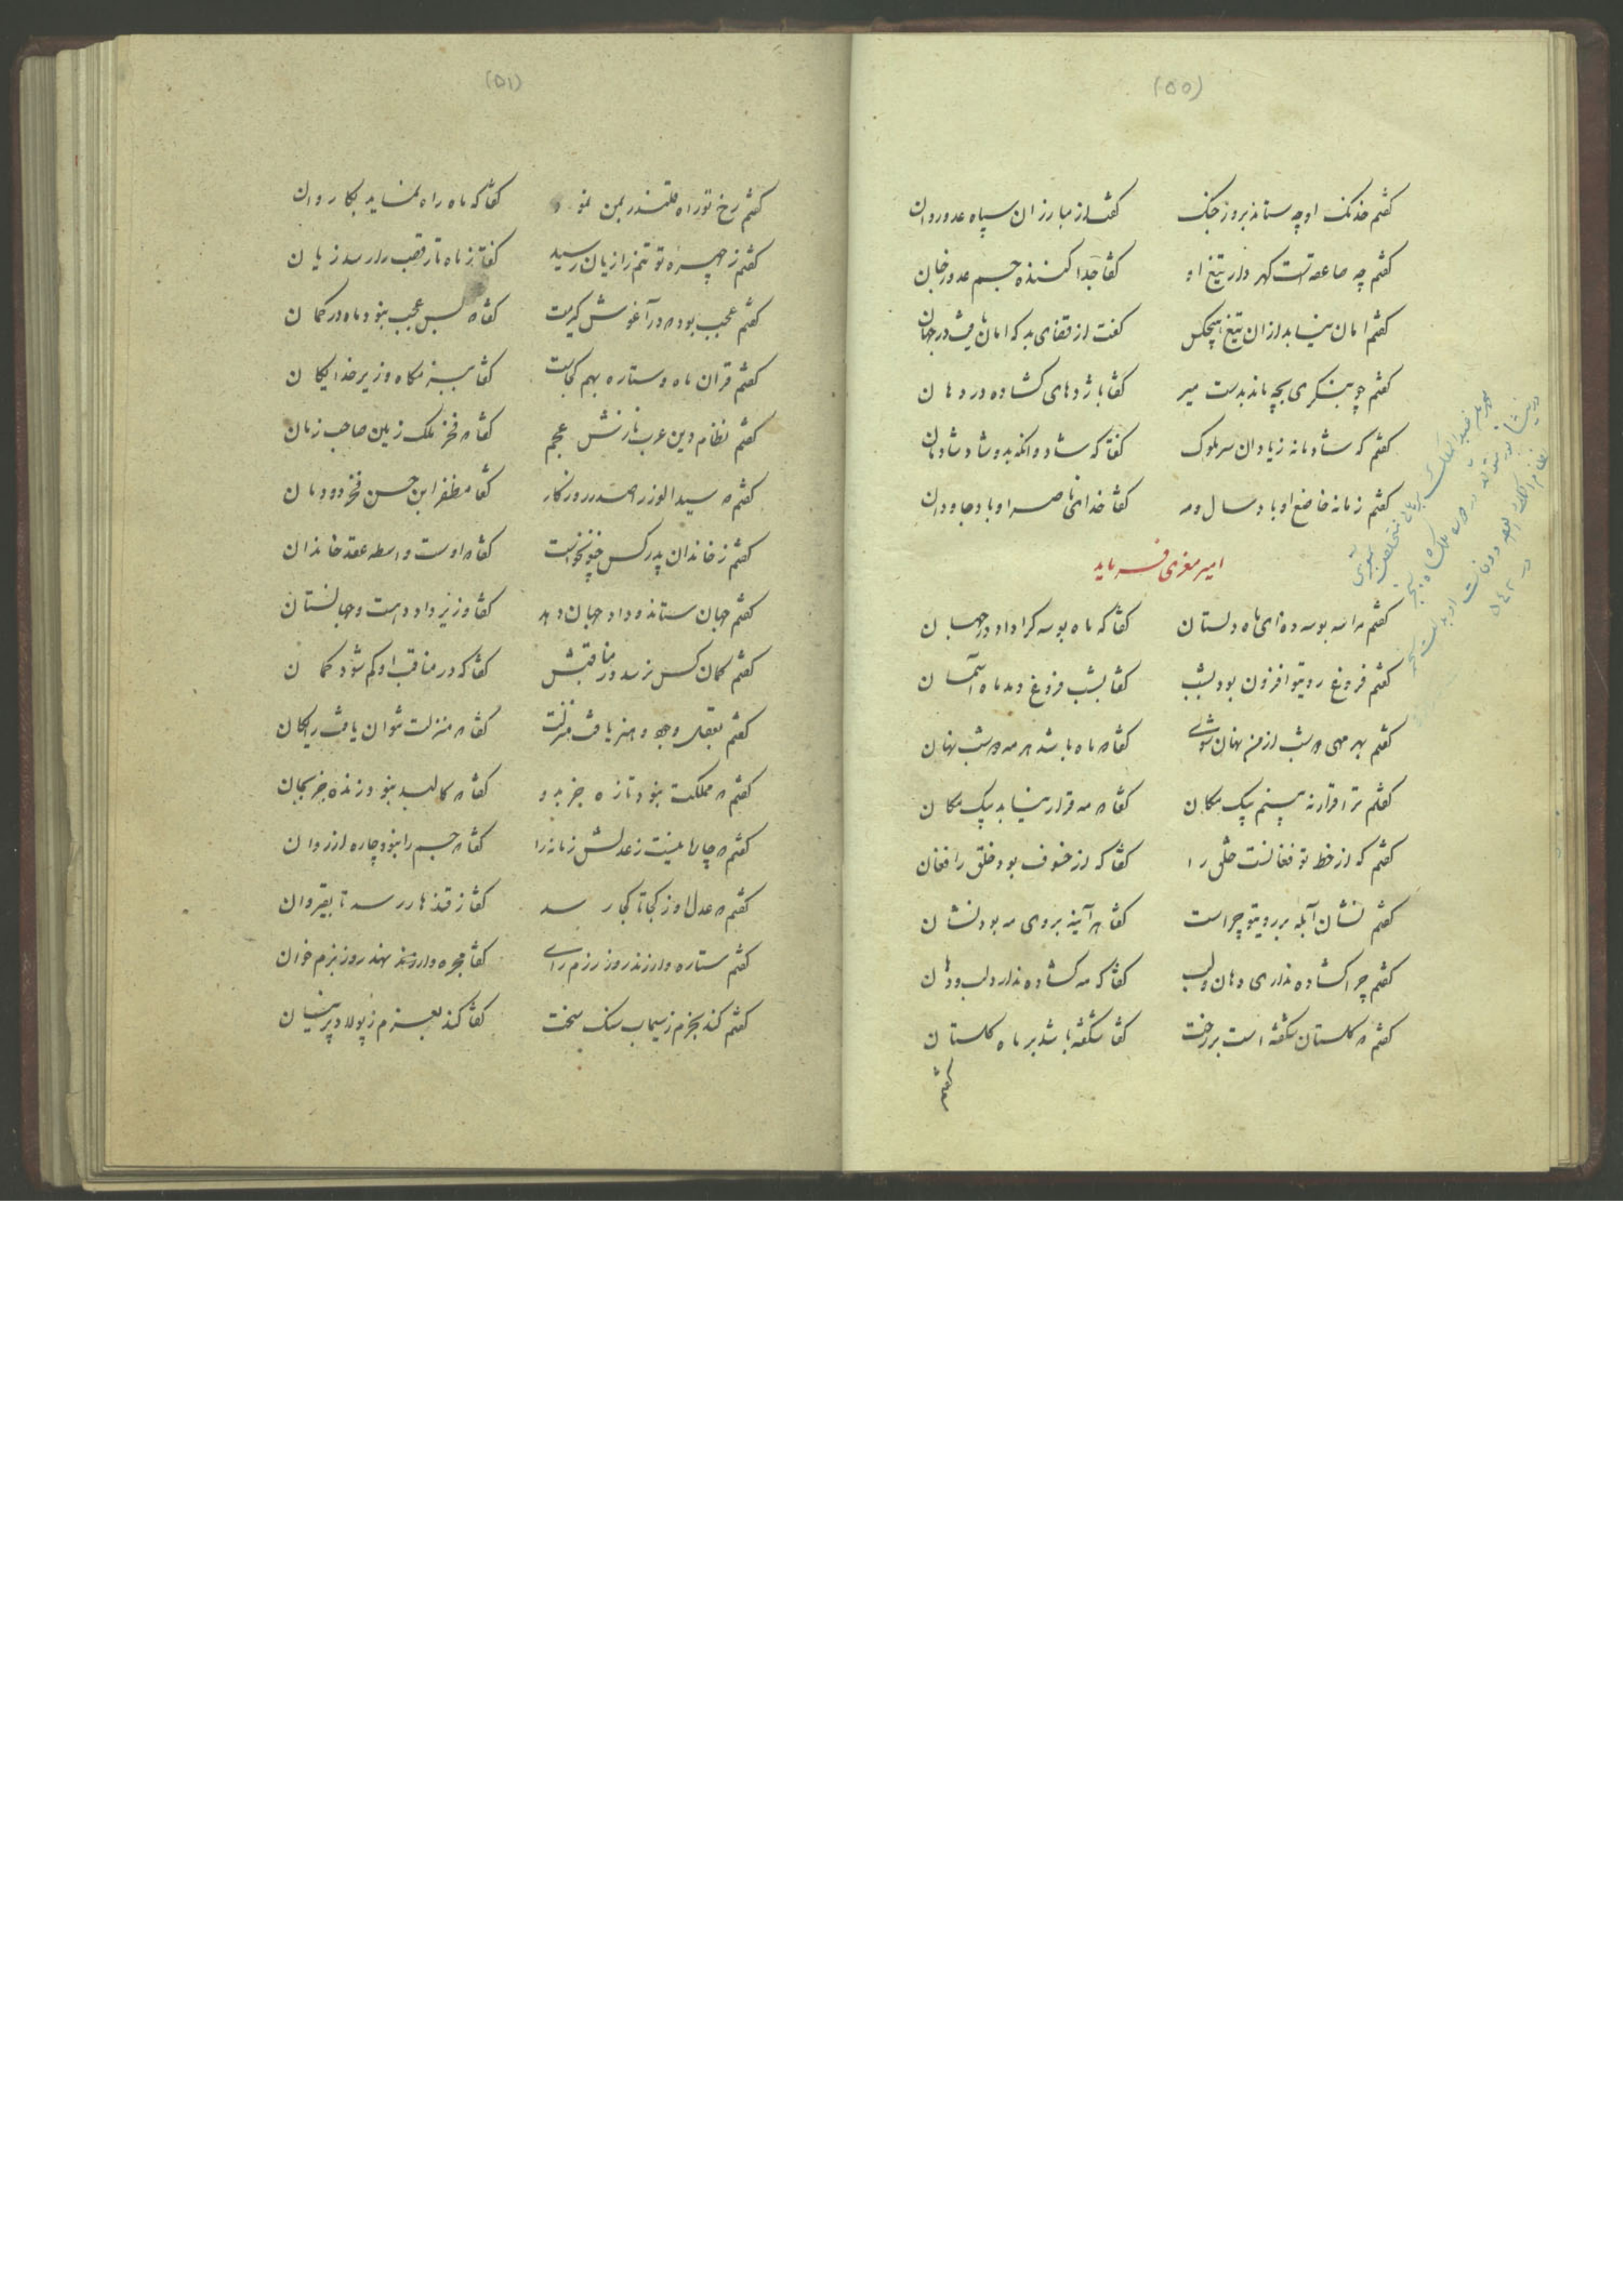 (۵۰)
گفتم خدنگ او چه ستاند بروز جنگ گفت از مبارزان سپاه عدو روان
گفتم چه صاعقه است گهر دار تیغ او گفتا جدا کننده جسم عدو ز جان
گفتم امان نیابد ازان تیغ هیچکس گفت از قضای بد که امان یافت در جهان
گفتم چو بنگری بچه ماند بدست میر گفتا باژدهای گشاده دو دهان
گفتم که شادمانه زیاد آن سر ملوک گفتا که شاد و آنکه بدو شاد شادمان
گفتم زمانه خاضع او باد سال و مه گفتا خدای ناصر او باد جاودان
امیر معزی فرماید
گفتم مرا سه بوسه ده ای ماه دلستان گفتا که ماه بوسه کرا داد در جهان
گفتم فروغ روی تو افزون بود بشب گفتا بشب فروغ دهد ماه آسمان
گفتم بهر مهی دو شب از من نهان شوی گفتا که ماه باشد هر مه دو شب نهان
گفتم ترا قرار نه بینم بیک مکان گفتا که مه قرار نیابد بیک مکان
گفتم که از خط تو فغانست خلق را گفتا که از خسوف بود خلق را فغان
گفتم نشان آبله بر روی تو چراست گفتا هر آینه بروی مه بود نشان
گفتم چرا گشاده نداری دهان و لب گفتا که مه گشاده ندارد لب و دهان
گفتم که گلستان شکفته است بر رخت گفتا شکفته باشد بر ماه گلستان
گفتم
(۵۱)
گفتم رخ تو راه قلندر بمن نمود گفتا که ماه راه نماید بکاروان
گفتم ز چهره تو تنم را زیان رسید گفتا ز ماه تار قصب را رسد زیان
گفتم عجب بود که در آغوش گیرمت گفتا که بس عجب نبود ماه در کمان
گفتم قران ماه و ستاره بهم کجاست گفتا ببزمگاه وزیر خدایگان
گفتم نظام دین عرب نازش عجم گفتا که فخر ملک زمین صاحب زمان
گفتم که سید الوزرا صدر روزگار گفتا مظفر ابن حسن فخر دودمان
گفتم ز خاندان پدر کس چنو نخواست گفتا که اوست واسطه عقد خاندان
گفتم جهان ستاند و داد جهان دهد گفتا وزیر داد دهست و جهانستان
گفتم گمان کس نرسد در مناقبش گفتا که در مناقب او گم شود گمان
گفتم بعقل و جود و هنر یافت منزلت گفتا که منزلت نتوان یافت رایگان
گفتم که مملکت نبود تازه جز بدو گفتا که کالبد نبود زنده جز بجان
گفتم که چاره نیست ز عدلش زمانه را گفتا که جسم را نبود چاره از روان
گفتم که عدل او ز کجا تا کجا رسد گفتا ز قندهار رسد تا بقیروان
گفتم ستاره وارند روز رزم رای گفتا مجره وار نهد روز بزم خوان
گفتم کند بحزم ز سیماب سنگ سخت گفتا کند بعزم ز پولاد پرنیان